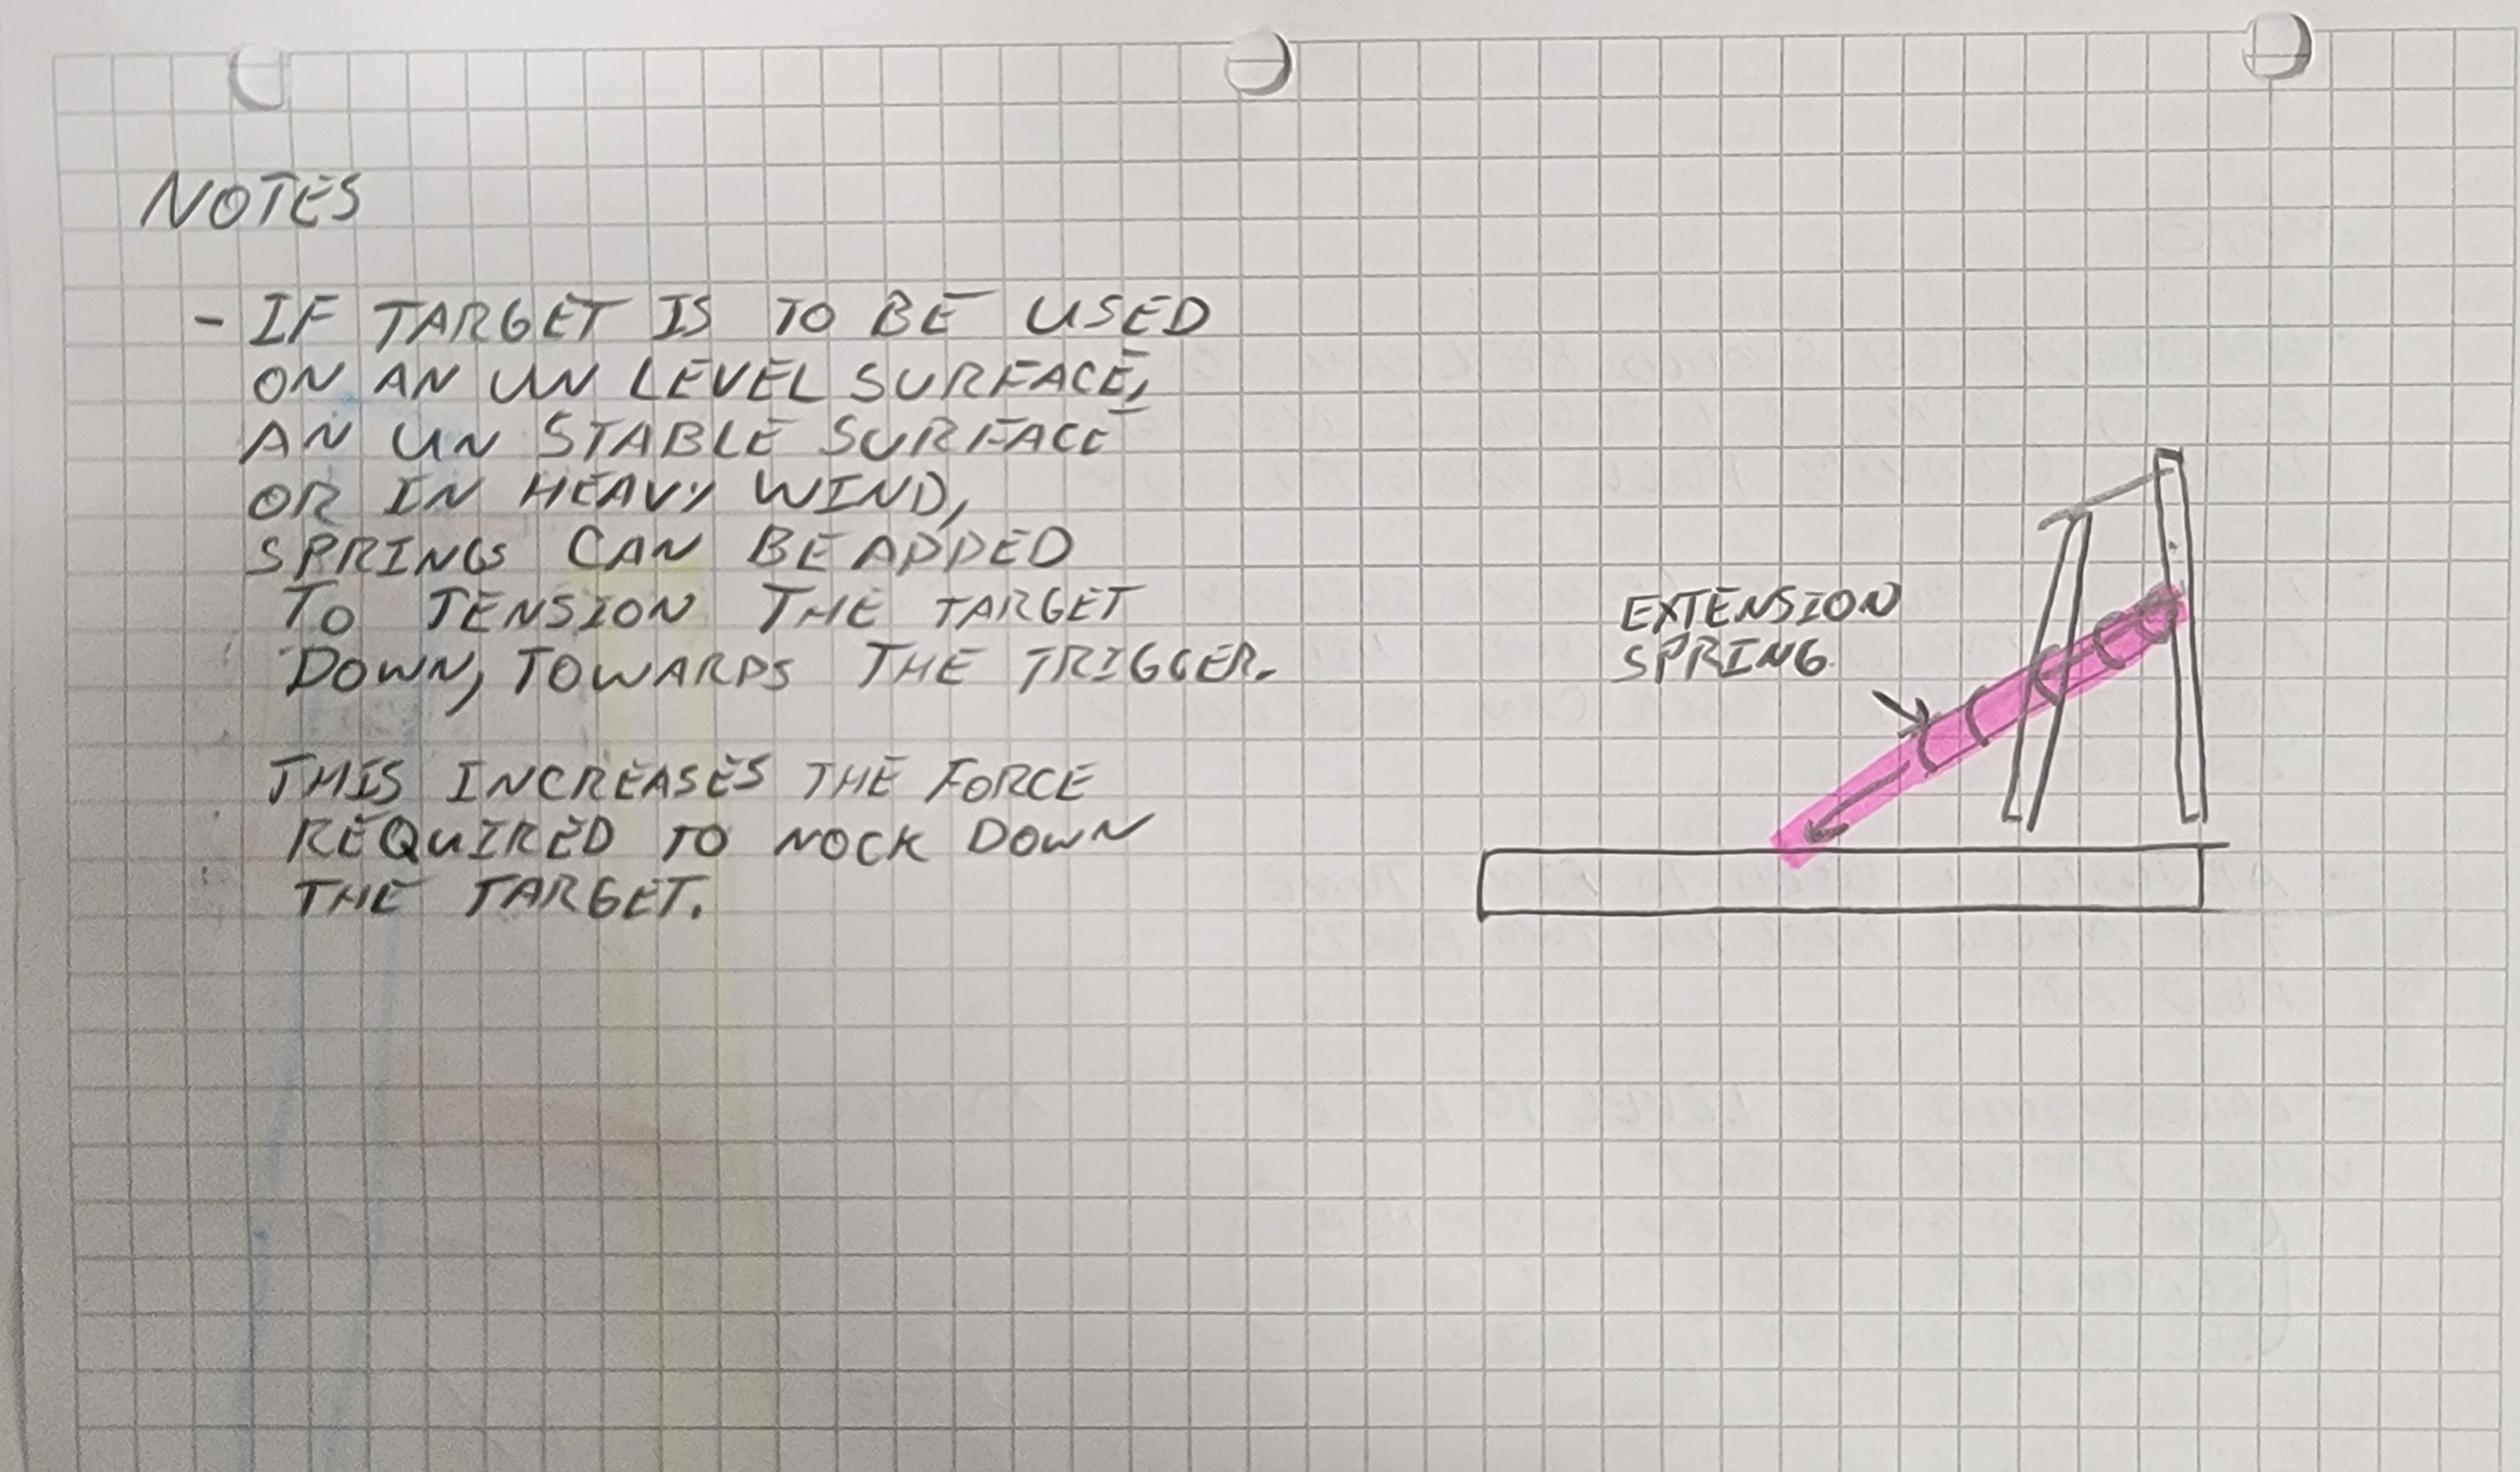 NOTES
- IF TARGET IS TO BE USED
ON AN UN LEVEL SURFACE,
AN UN STABLE SURFACE
OR IN HEAVY WIND,
SPRINGS CAN BE ADDED
TO TENSION THE TARGET
DOWN, TOWARDS THE TRIGGER.
THIS INCREASES THE FORCE
REQUIRED TO NOCK DOWN
THE TARGET.
EXTENSION
SPRING